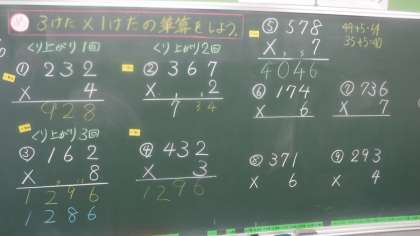 3けた×1けたの筆算をしよう。
くり上がり1回
① 232
× 4
928
くり上がり2回
② 367
× 2
734
くり上がり3回
③ 162
× 8
1296
1286
④ 432
× 3
1296
⑤ 578
× 7
4046
49+5=54
35+5=40
⑥ 174
× 6
⑦ 736
× 7
⑧ 371
× 6
⑨ 293
× 4